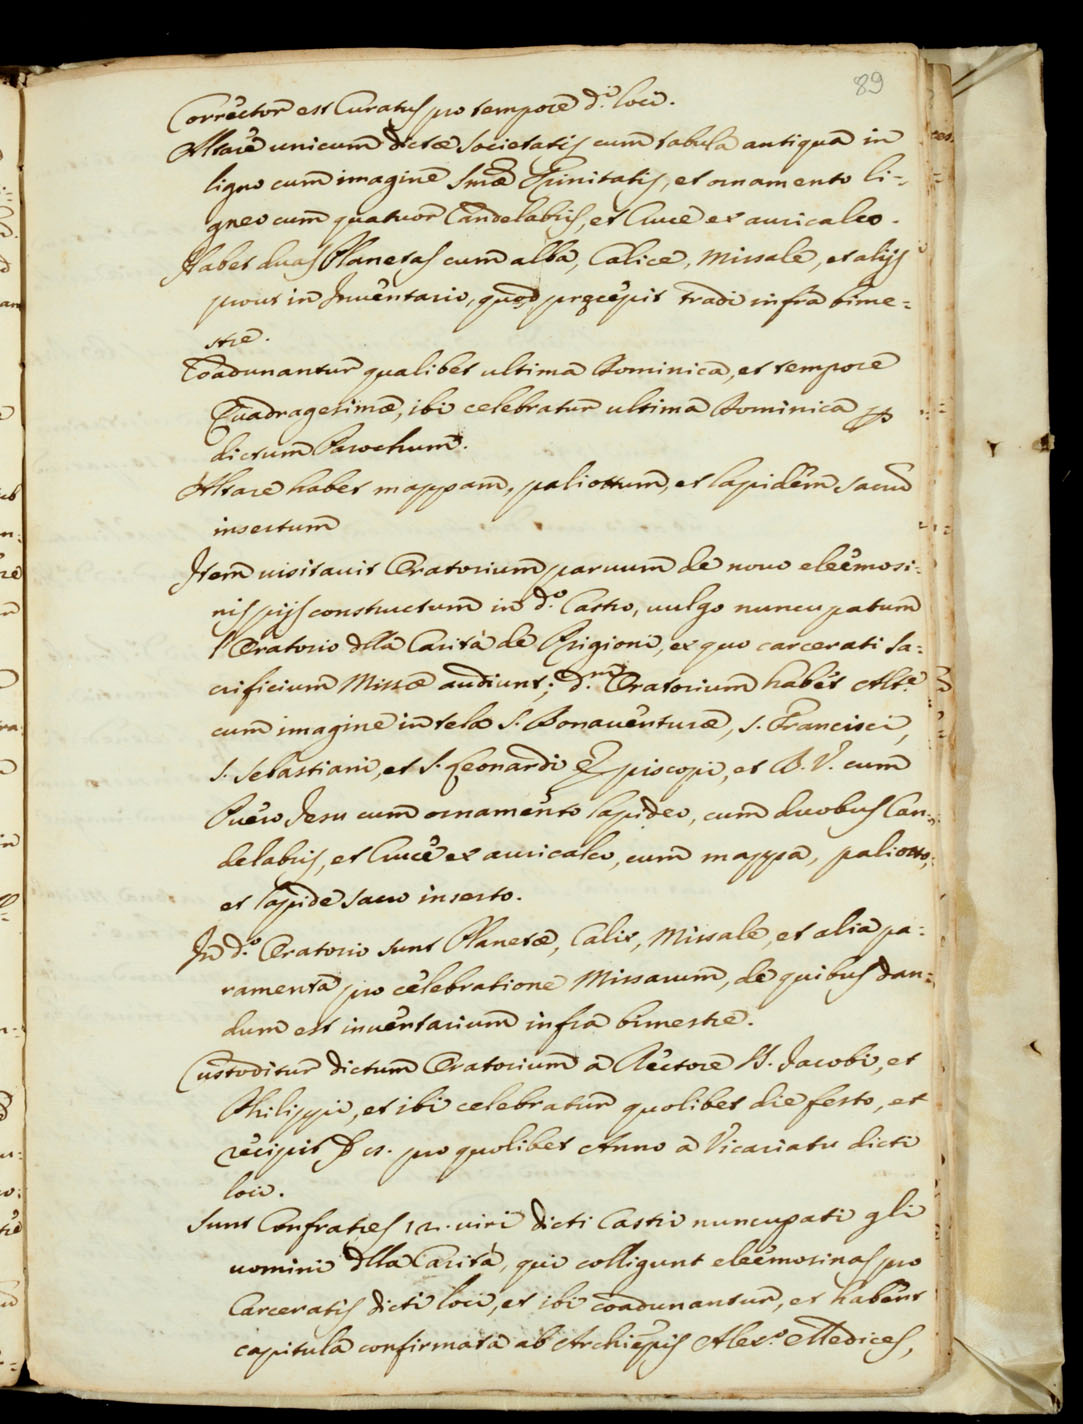 89
Corrector est Curatus pro tempore d.i loci.
Altare unicum dictæ societatis cum tabula antiqua in
ligno cum imagine Smæ Trinitatis, et ornamento li=
gneo cum quatuor Candelabris, et Cruce ex auricalco.
Habet duas Planetas cum alba, Calice, Missale, et alijs
prout in Inuentario, quod præcepit tradi infra bime=
stre.
Coadunantur qualibet ultima Dominica, et tempore
Quadragesimæ, ibi celebratur ultima Dominica p
dictum Parochum.
Altare habet mappam, paliottum, et lapidem sacru
insertum
Item uisitauit Oratorium paruum de nouo eleemosi=
nis pijs constructum in d.o Castro, uulgo nuncupatum
l'Oratorio dlla Carità de Prigioni, ex quo carcerati sa=
crificium Missæ audiunt; d.m Oratorium habet Alt.e
cum imagine in tela S. Bonauenturæ, S. Francisci,
S. Sebastiani, et S. Leonardi Episcopi, et B. V. cum
Puero Jesu cum ornamento lapideo, cum duobus Can=
delabris, et Cruce ex auricalco, cum mappa, paliotto,
et lapide sacro inserto.
In d.o Oratorio sunt Planetæ, Calix, Missale, et alia pa=
ramenta pro celebratione Missarum, de quibus dan=
dum est inuentarium infra bimestre.
Custoditur dictum Oratorium a Rectore SS. Jacobi, et
Philippi, et ibi celebratur quolibet die festo, et
recipit pro quolibet Anno a Vicariatu dicti
loci.
Sunt Confratres 12. uiri dicti Castri nuncupati gli
uomini dlla Carità, qui colligunt eleemosinas pro
Carceratis dicti loci, et ibi coadunantur, et habent
capitula confirmata ab Archiepis Alex.o Medices,